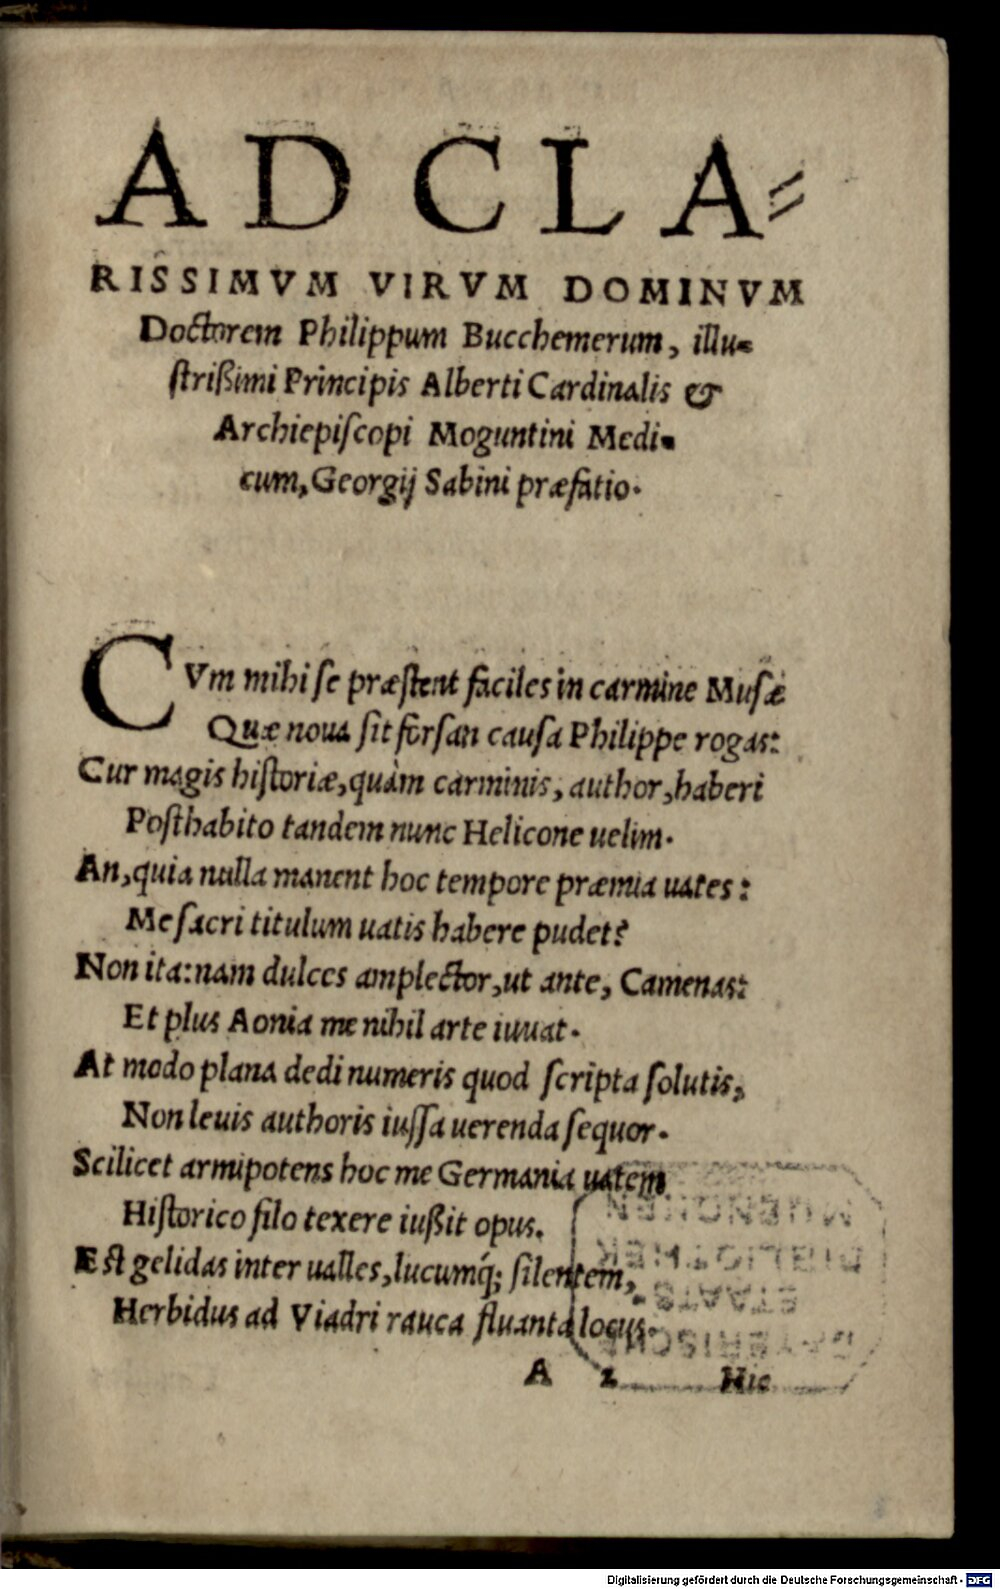 AD CLA⸗
RISSIMVM VIRVM DOMINVM
Doctorem Philippum Bucchemerum, illu⸗
ſtrißimi Principis Alberti Cardinalis &
Archiepiſcopi Moguntini Medi⸗
cum, Georgij Sabini præfatio.
CVm mihi ſe præſtent faciles in carmine Muſæ
Quæ noua ſit forſan cauſa Philippe rogas:
Cur magis hiſtoriæ, quàm carminis, author, haberi
Poſthabito tandem nunc Helicone uelim.
An, quia nulla manent hoc tempore præmia uates:
Me ſacri titulum uatis habere pudet?
Non ita: nam dulces amplector, ut ante, Camenas:
Et plus Aonia me nihil arte iuuat.
At modo plana dedi numeris quod ſcripta ſolutis,
Non leuis authoris iuſſa uerenda ſequor.
Scilicet armipotens hoc me Germania uatem
Hiſtorico filo texere iußit opus.
Eſt gelidas inter ualles, lucumq́; ſilentem,
Herbidus ad Viadri rauca fluanta locus.
A 2 Hic
BAYERISCHE
STAATS-
BIBLIOTHEK
MUENCHEN
Digitalisierung gefördert durch die Deutsche Forschungsgemeinschaft - DFG